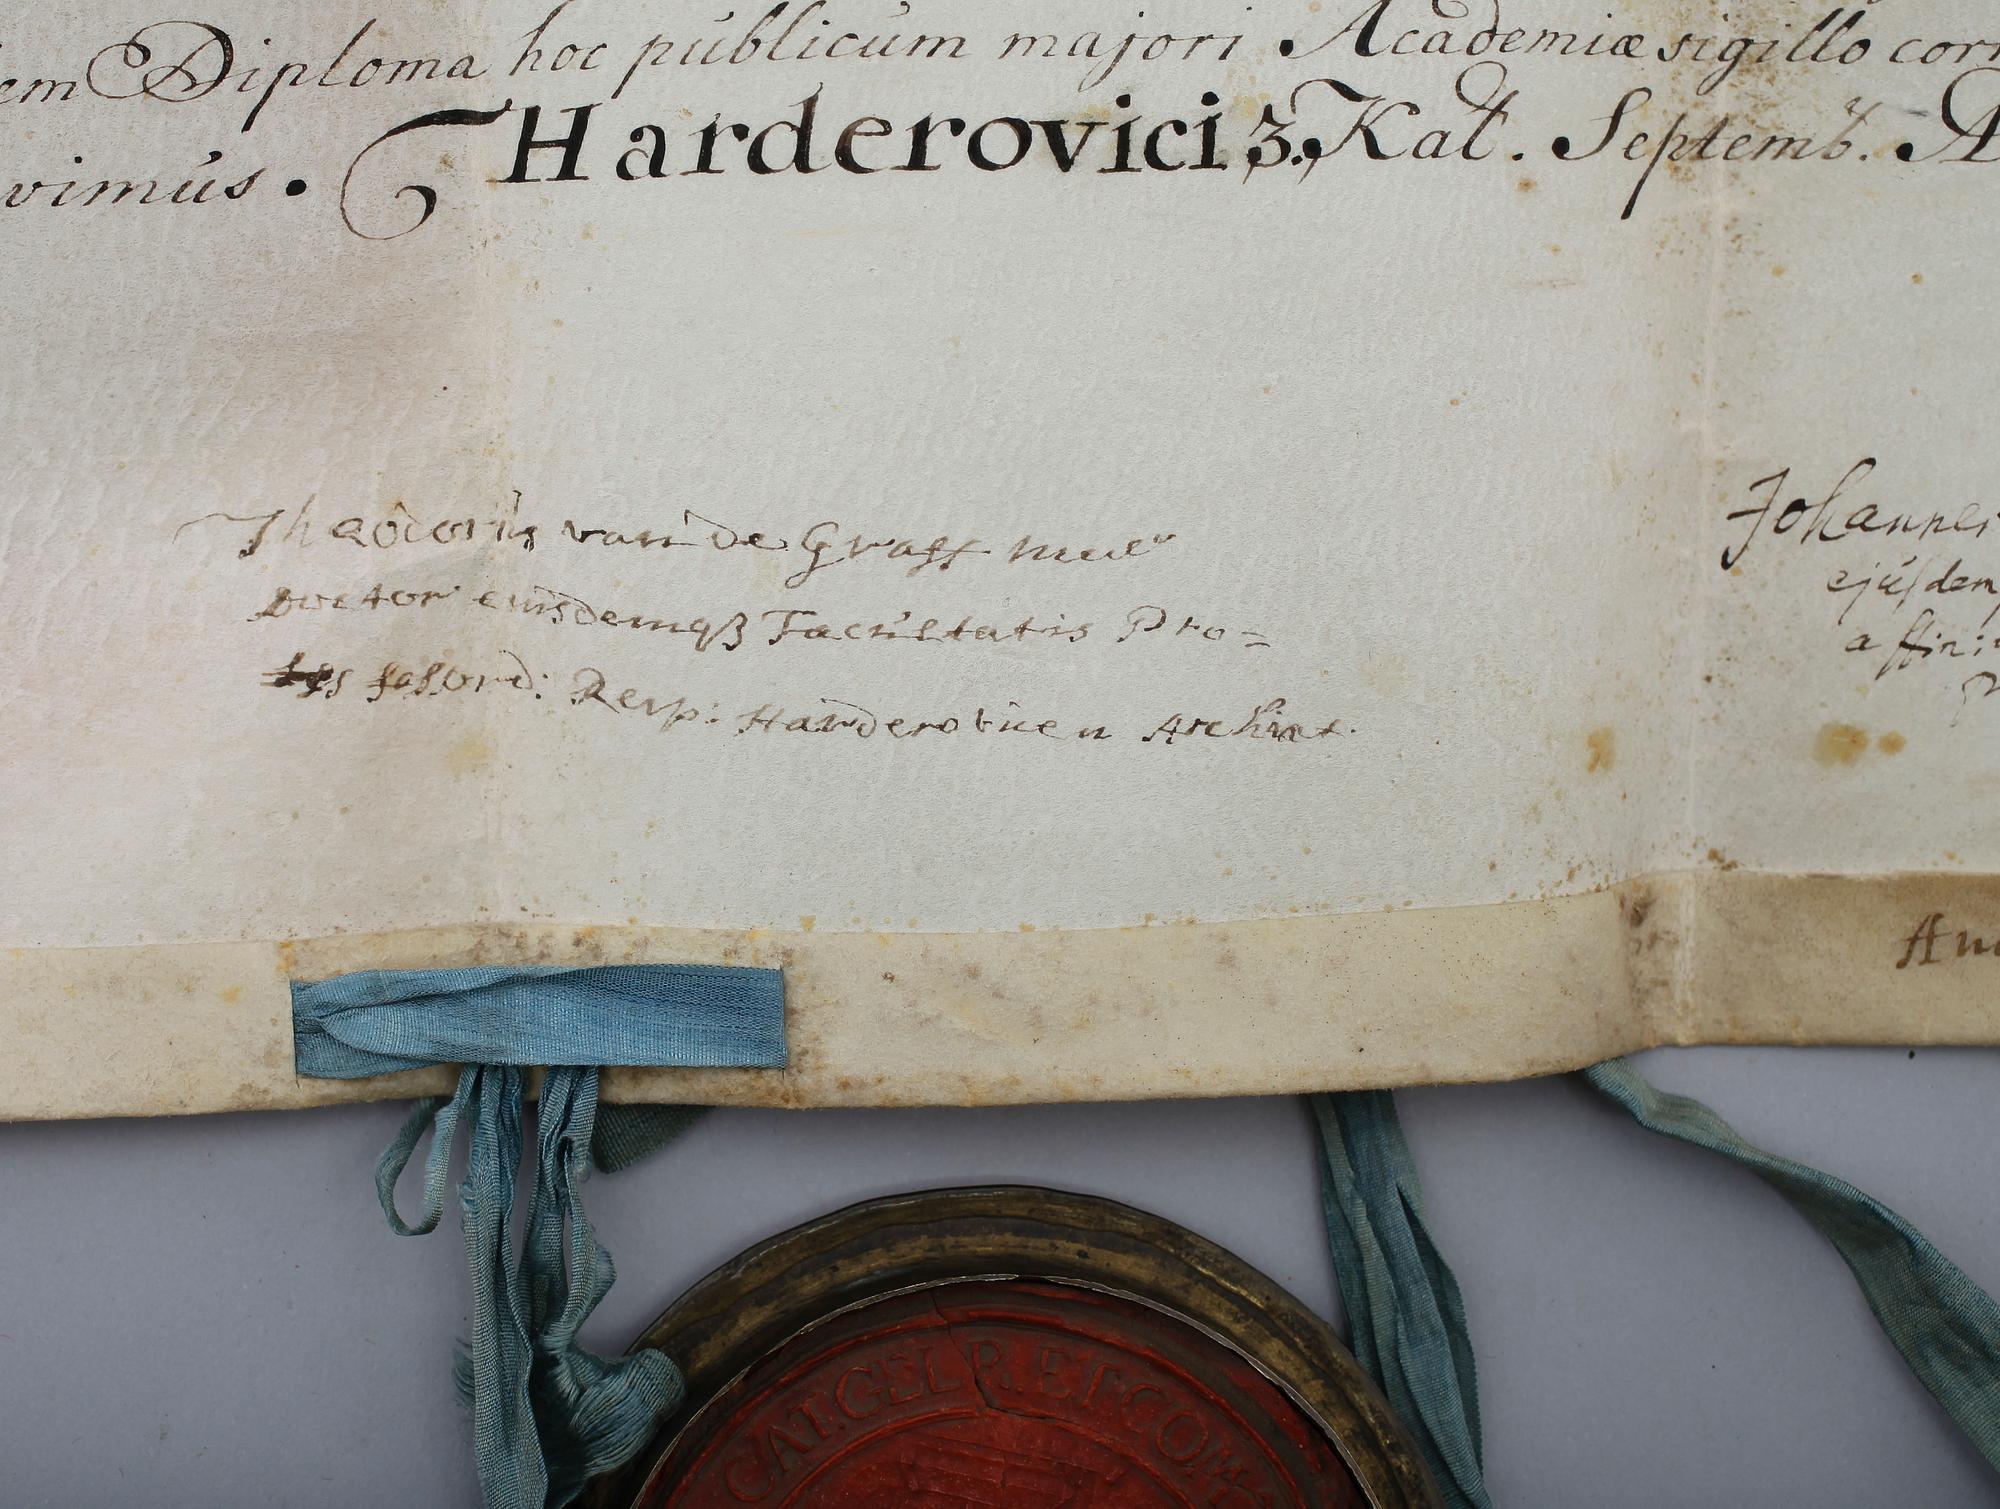 em Diploma hoc publicum majori Academiæ sigillo corr
vimus. Harderovici 3. Kal. Septemb. A
Theodorus van de Graff
Doctor eiusdemqꝫ Facultatis Pro=
fess ord: Reip: Harderovicen Archiat.
Johannes
ejusdem
affin:
An
CAT. GELR. ET COM